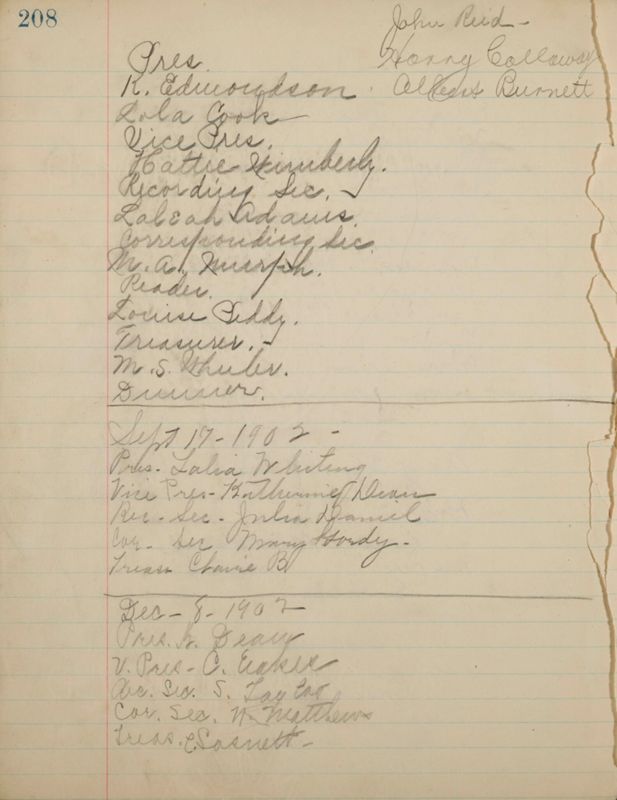 208
John Reid -
Harry Callaway
Albert Burnett
Pres.
K. Edmondson
Lola Cook
Vice Pres.
Hattie Kimberly.
Recording Sec. -
Adams.
Corresponding Sec.
M. A. Murph.
Reader.
Louise Peddy.
Treasurer. -
M. S. Wheeler.
Sept 17 - 1902 -
Pres. Lalia Whiting
Vice Pres - Katherine Dean
Rec. Sec. Julia Daniel
Cor. Sec Mary Hordy -
Treas B.
Dec - 8 - 1902
Pres. K. Dean
V. Pres - C. Eakes
Rec. Sec. S.
Cor. Sec. Matthews
Treas. Sasnett -